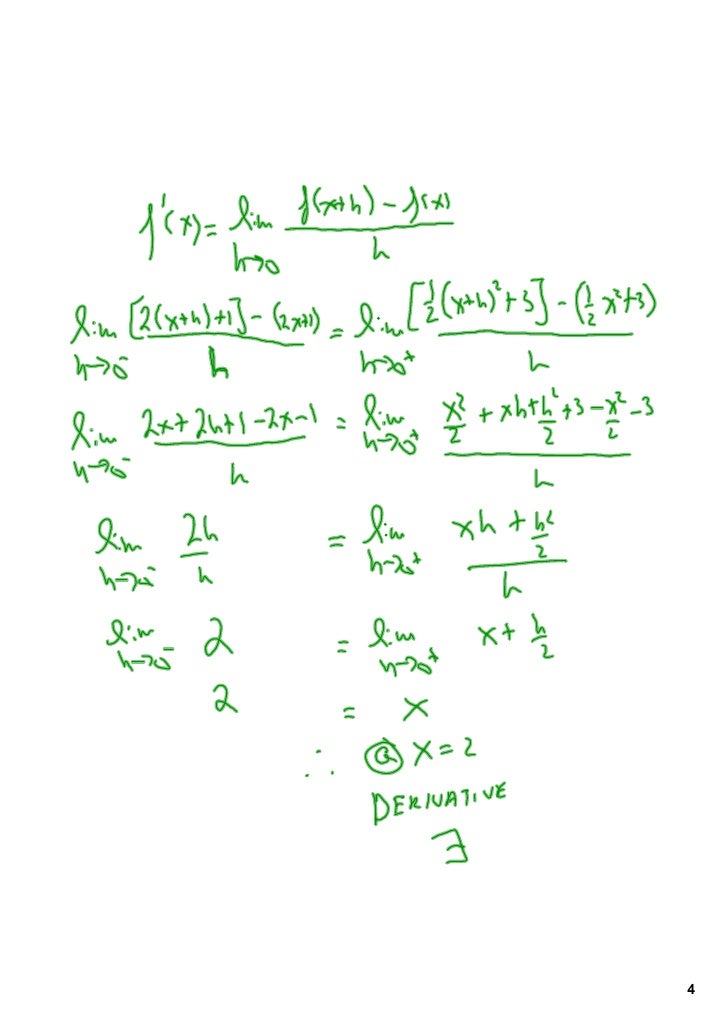 f'(x) = lim h→0 f(x+h) - f(x) / h
lim h→0⁻ [2(x+h)+1] - (2x+1) / h = lim h→0⁺ [1/2(x+h)²+3] - (1/2 x²+3) / h
lim h→0⁻ 2x+2h+1-2x-1 / h = lim h→0⁺ x²/2 + xh + h²/2 + 3 - x²/2 - 3 / h
lim h→0⁻ 2h / h = lim h→0⁺ xh + h²/2 / h
lim h→0⁻ 2 = lim h→0⁺ x + h/2
2 = x
∴ @ x = 2
DERIVATIVE
∃
4